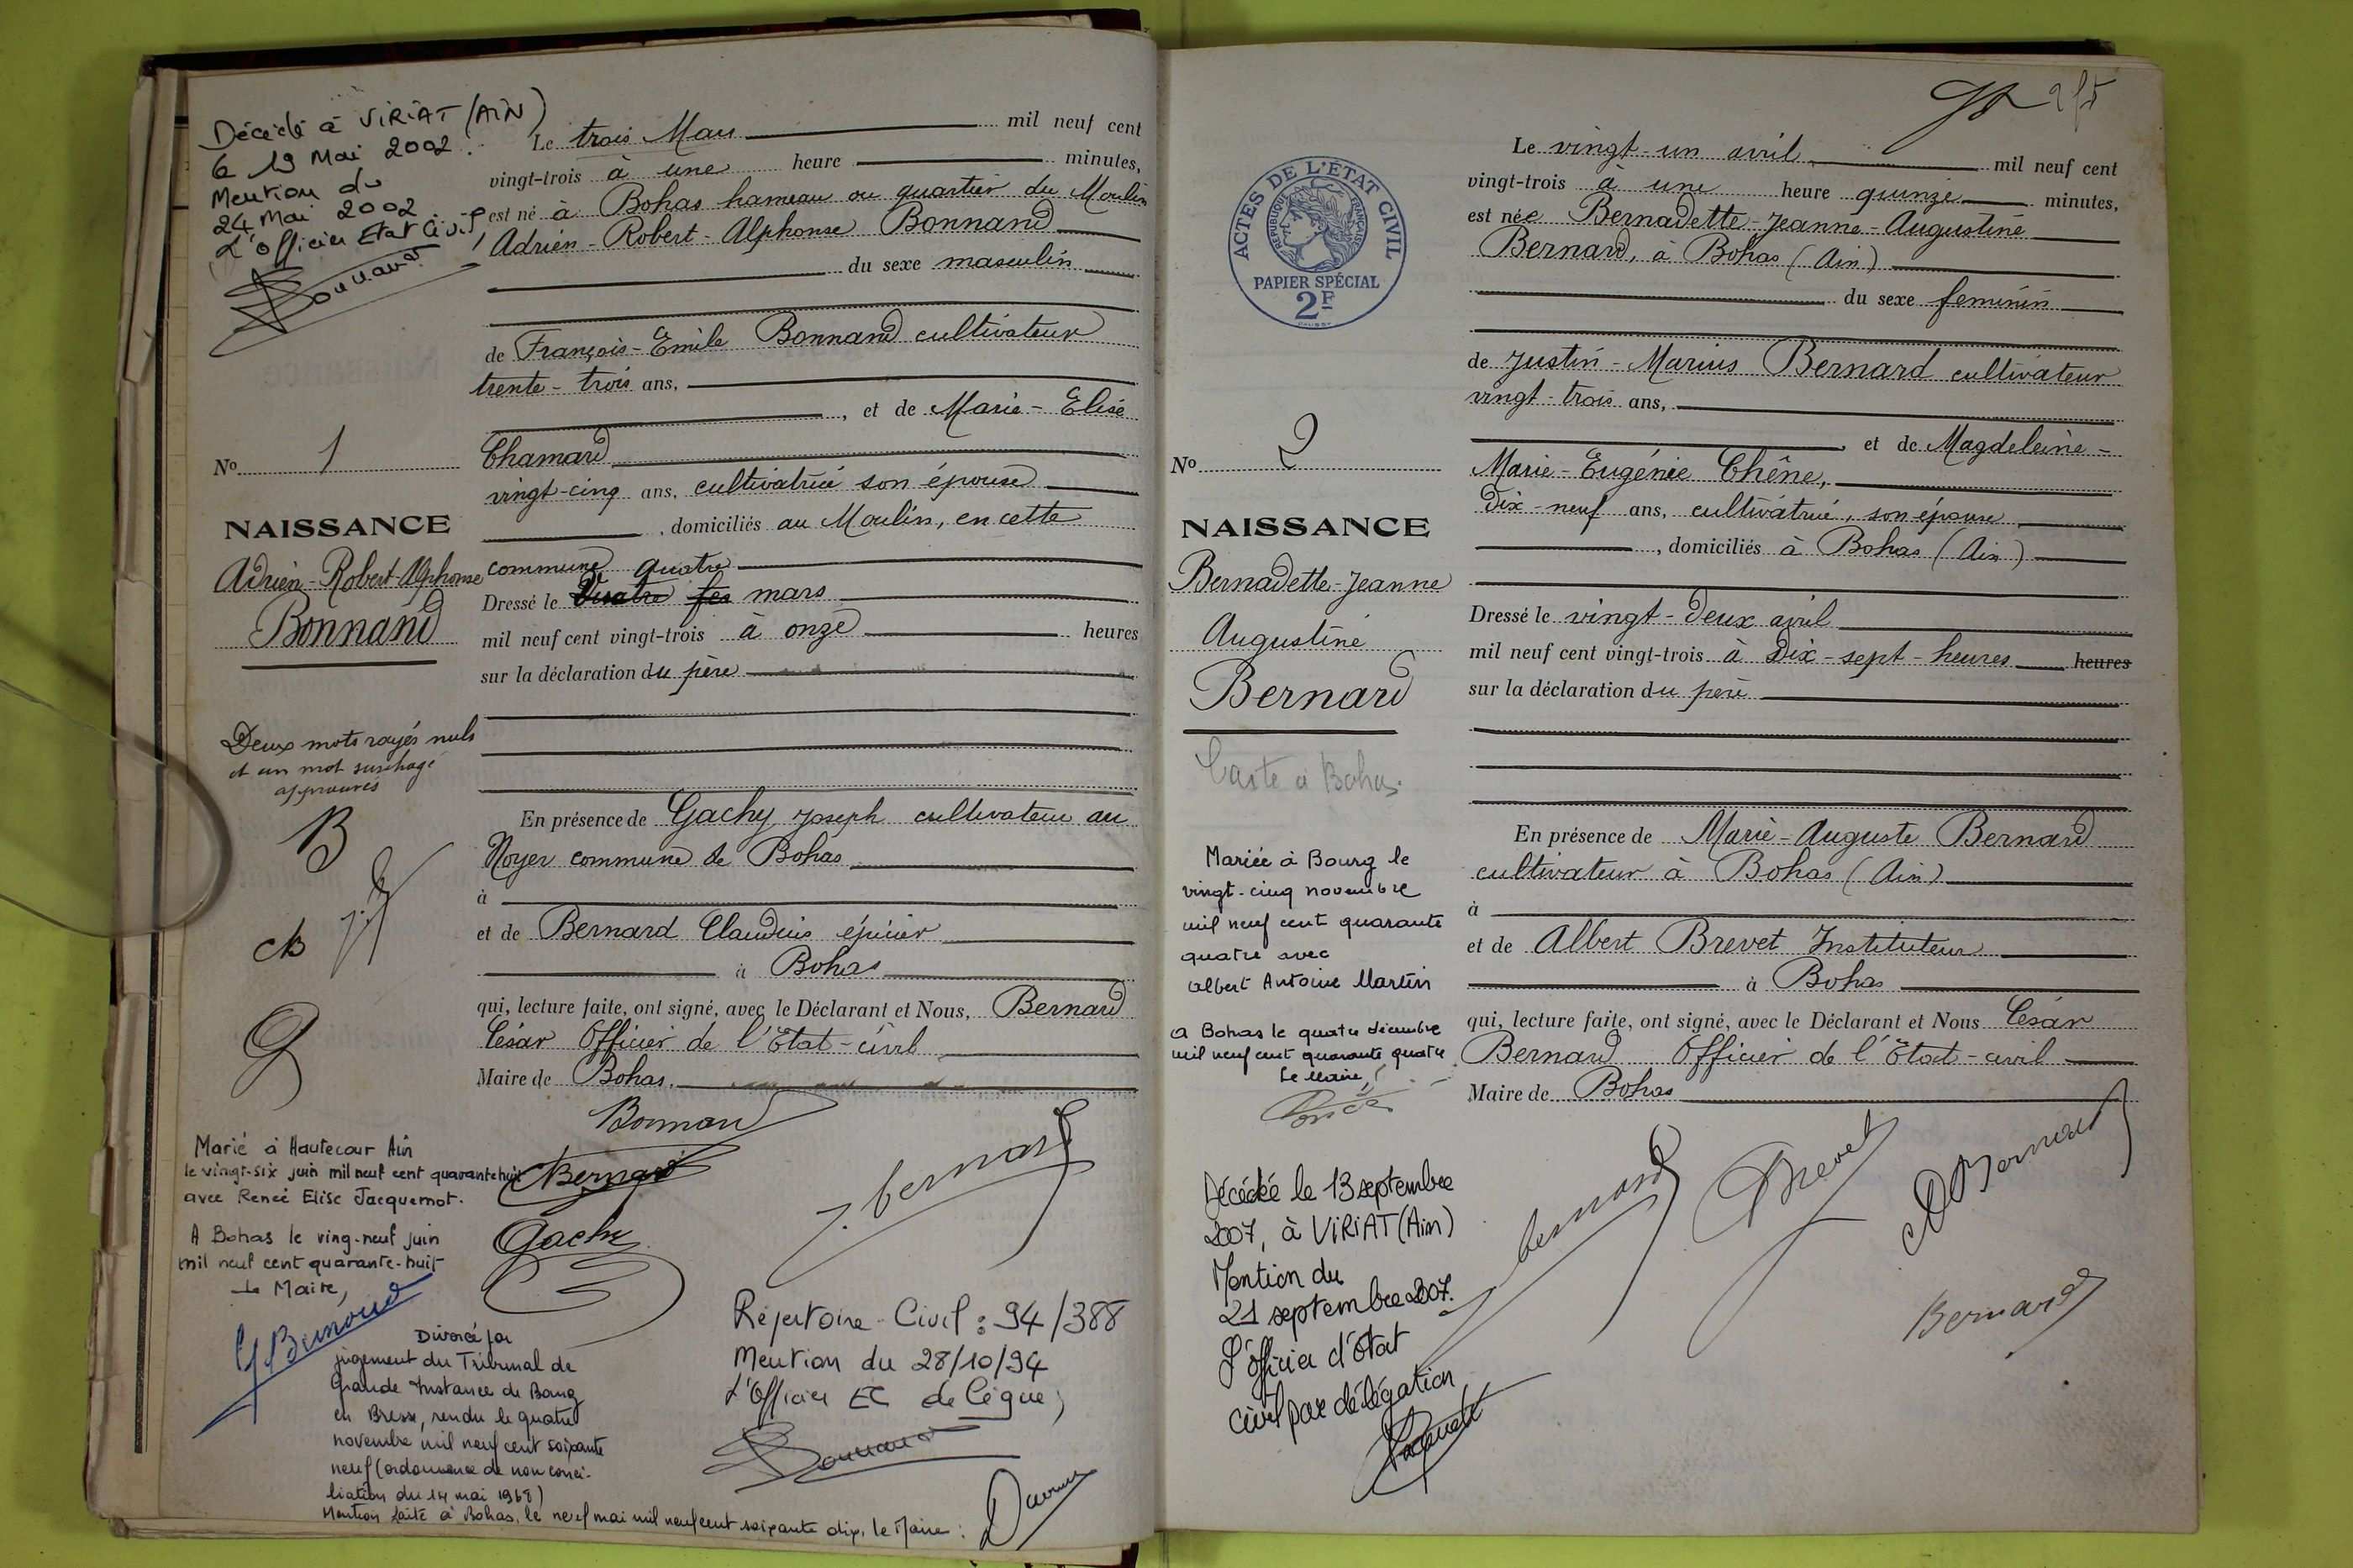 Décédé à VIRIAT (AIN)
le 19 Mai 2002.
Mention du
24 Mai 2002
L'officier Etat Civil,
Le trois Mars mil neuf cent
vingt-trois à une heure minutes,
est né à Bohas hameau ou quartier du Moulin
Adrien-Robert-Alphonse Bonnand
du sexe masculin
de François-Emile Bonnand cultivateur
trente-trois ans,
, et de Marie-Elise
Chamard
vingt-cinq ans, cultivatrice son épouse
, domiciliés au Moulin, en cette
commune quatre
Dressé le Quatre fes mars
mil neuf cent vingt-trois à onze heures
sur la déclaration du père
En présence de Gachy Joseph cultivateur au
Noyer commune de Bohas
à
et de Bernard Claudius épicier
à Bohas
qui, lecture faite, ont signé, avec le Déclarant et Nous, Bernard
César Officier de l'Etat-civil
Maire de Bohas.
Bonnand
Bernard
Gachy
J. Bernard
No 1
NAISSANCE
Adrien-Robert-Alphonse
Bonnand
Deux mots rayés nuls
et un mot surchagé
approuvés
B
CB
G
Marié à Hautecour Ain
le vingt-six juin mil neuf cent quarante huit
avec Renée Elise Jacquemot.
A Bohas le ving-neuf juin
mil neuf cent quarante-huit
Le Maire,
Divorcé par
jugement du Tribunal de
Grande Instance de Bourg
en Bresse, rendu le quatre
novembre mil neuf cent soixante
neuf (ordonnance de non conci-
liation du 14 mai 1968)
Mention faite à Bohas, le neuf mai mil neuf cent soixante dix, le Maire :
Répertoire Civil : 94/388
Mention du 28/10/94
L'Officier EC delégué,
ACTES DE L'ÉTAT CIVIL
RÉPUBLIQUE FRANÇAISE
PAPIER SPÉCIAL
2F
Le vingt-un avril mil neuf cent
vingt-trois à une heure quinze minutes,
est née Bernadette-Jeanne-Augustine
Bernard, à Bohas (Ain)
du sexe feminin
de Justin-Marius Bernard cultivateur
vingt-trois ans,
et de Magdeleine-
Marie-Eugénie Chêne,
Dix-neuf ans, cultivatrice, son épouse
, domiciliés à Bohas (Ain)
Dressé le vingt-deux avril
mil neuf cent vingt-trois à Dix-sept-heures heures
sur la déclaration du père
En présence de Marie-Auguste Bernard
cultivateur à Bohas (Ain)
à
et de Albert Brevet Instituteur
à Bohas
qui, lecture faite, ont signé, avec le Déclarant et Nous César
Bernard Officier de l'Etat-civil
Maire de Bohas
Bernard
Brevet
Bernard
Bernard
No 2
NAISSANCE
Bernadette-Jeanne
Augustine
Bernard
Carte à Bohas.
Mariée à Bourg le
vingt-cinq novembre
mil neuf cent quarante
quatre avec
Albert Antoine Martin
A Bohas le quatre décembre
mil neuf cent quarante quatre
Le Maire,
Décédée le 13 septembre
2007, à VIRIAT (Ain)
Mention du
21 septembre 2007.
L'officier d'état
civil par délégation